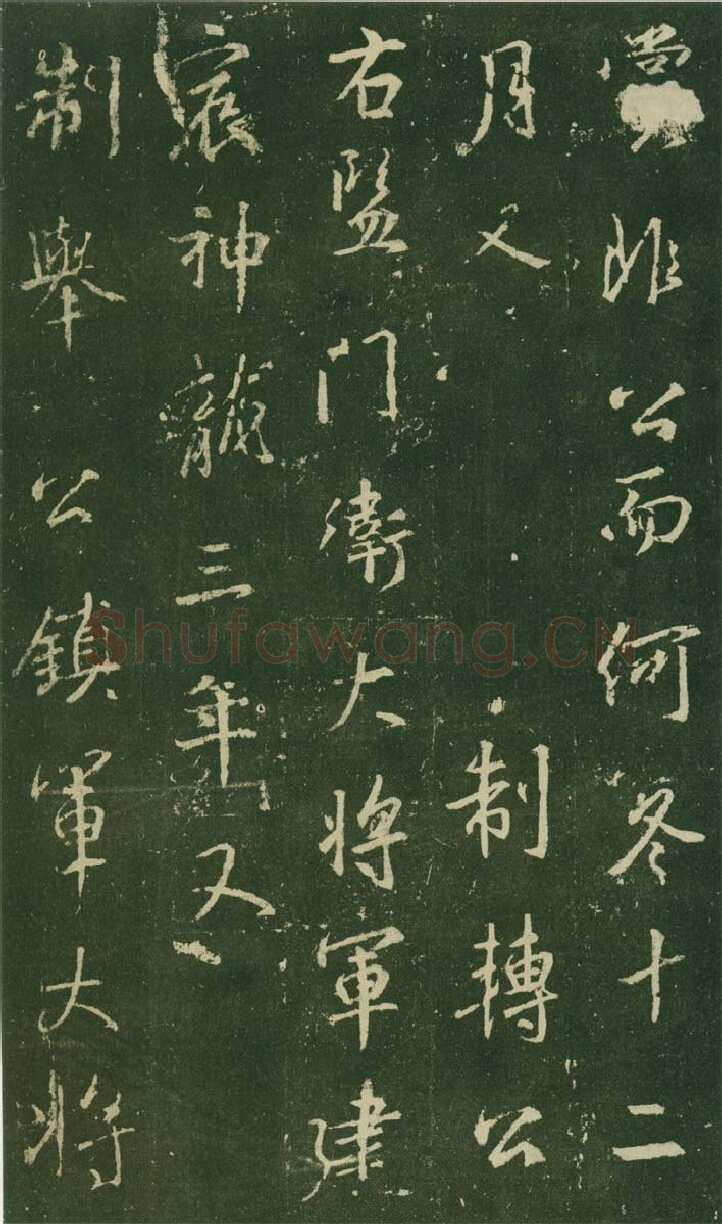 非公而何冬十二
月又制轉公
右監門衛大將軍建
宸神龍三年又
制舉公鎮軍大將
Shufawang.CN